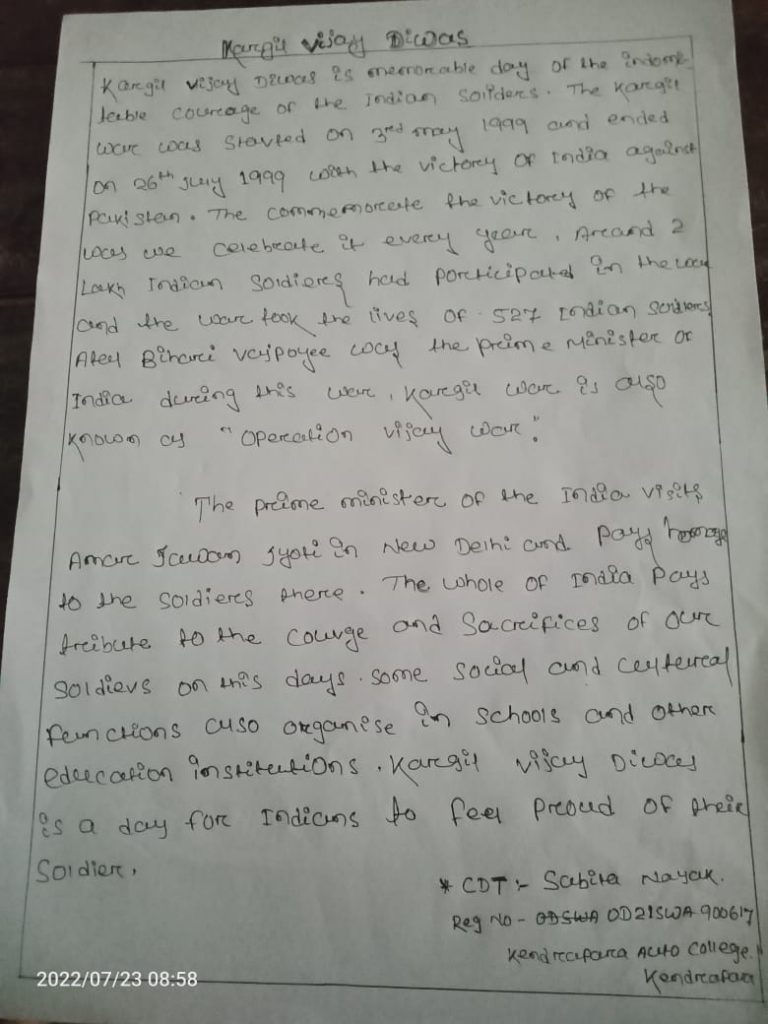 Kargil Vijay Diwas
Kargil Vijay Diwas is memorable day of the indomi-
table courage of the Indian soliders. The Kargil
war was started on 3rd may 1999 and ended
on 26th July 1999 with the victory of India against
Pakistan. The commemorate the victory of the
was we celebrate it every year. Around 2
Lakh Indian Soldiers had participated in the war
and the war took the lives of 527 Indian soldiers
Atal Bihari Vajpayee was the prime minister of
India during this war. Kargil war is also
known as "Operation vijay war."
The prime minister of the India visits
Amar Jawan Jyoti in New Delhi and pays homage
to the soldiers there. The whole of India pays
tribute to the courge and Sacrifices of our
soldiers on this days. some social and cultural
functions also organise in schools and other
education institutions. Kargil Vijay Diwas
is a day for Indians to feel proud of their
Soldier.
* CDT :- Sabita Nayak.
Reg No - ODSWA OD21SWA900617
Kendrapara Auto College.
Kendrapara
2022/07/23 08:58